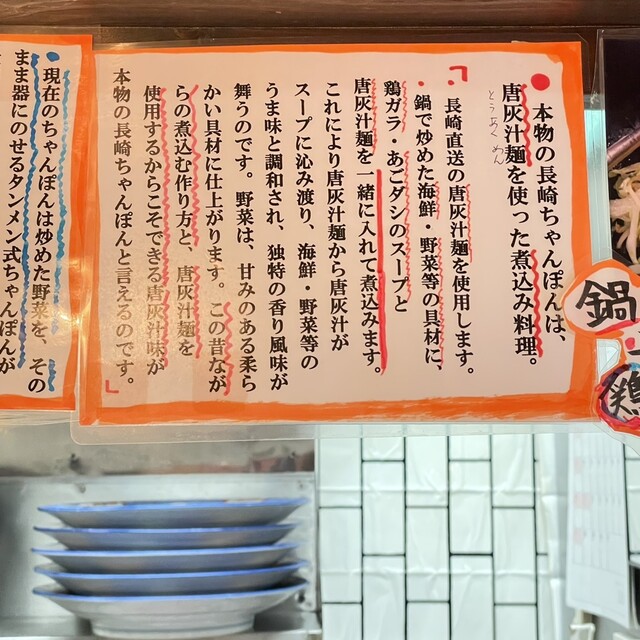 ●本物の長崎ちゃんぽんは、
唐灰汁麺を使った煮込み料理。
とうあくめん
「長崎直送の唐灰汁麺を使用します。
・鍋で炒めた海鮮・野菜等の具材に、
鶏ガラ・あごダシのスープと
唐灰汁麺を一緒に入れて煮込みます。
これにより唐灰汁麺から唐灰汁が
スープに沁み渡り、海鮮・野菜等の
うま味と調和され、独特の香り風味が
舞うのです。野菜は、甘みのある柔ら
かい具材に仕上がります。この昔なが
らの煮込む作り方と、唐灰汁麺を
使用するからこそできる唐灰汁味が
本物の長崎ちゃんぽんと言えるのです。」
●現在のちゃんぽんは炒めた野菜を、その
まま器にのせるタンメン式ちゃんぽんが
鍋
鶏